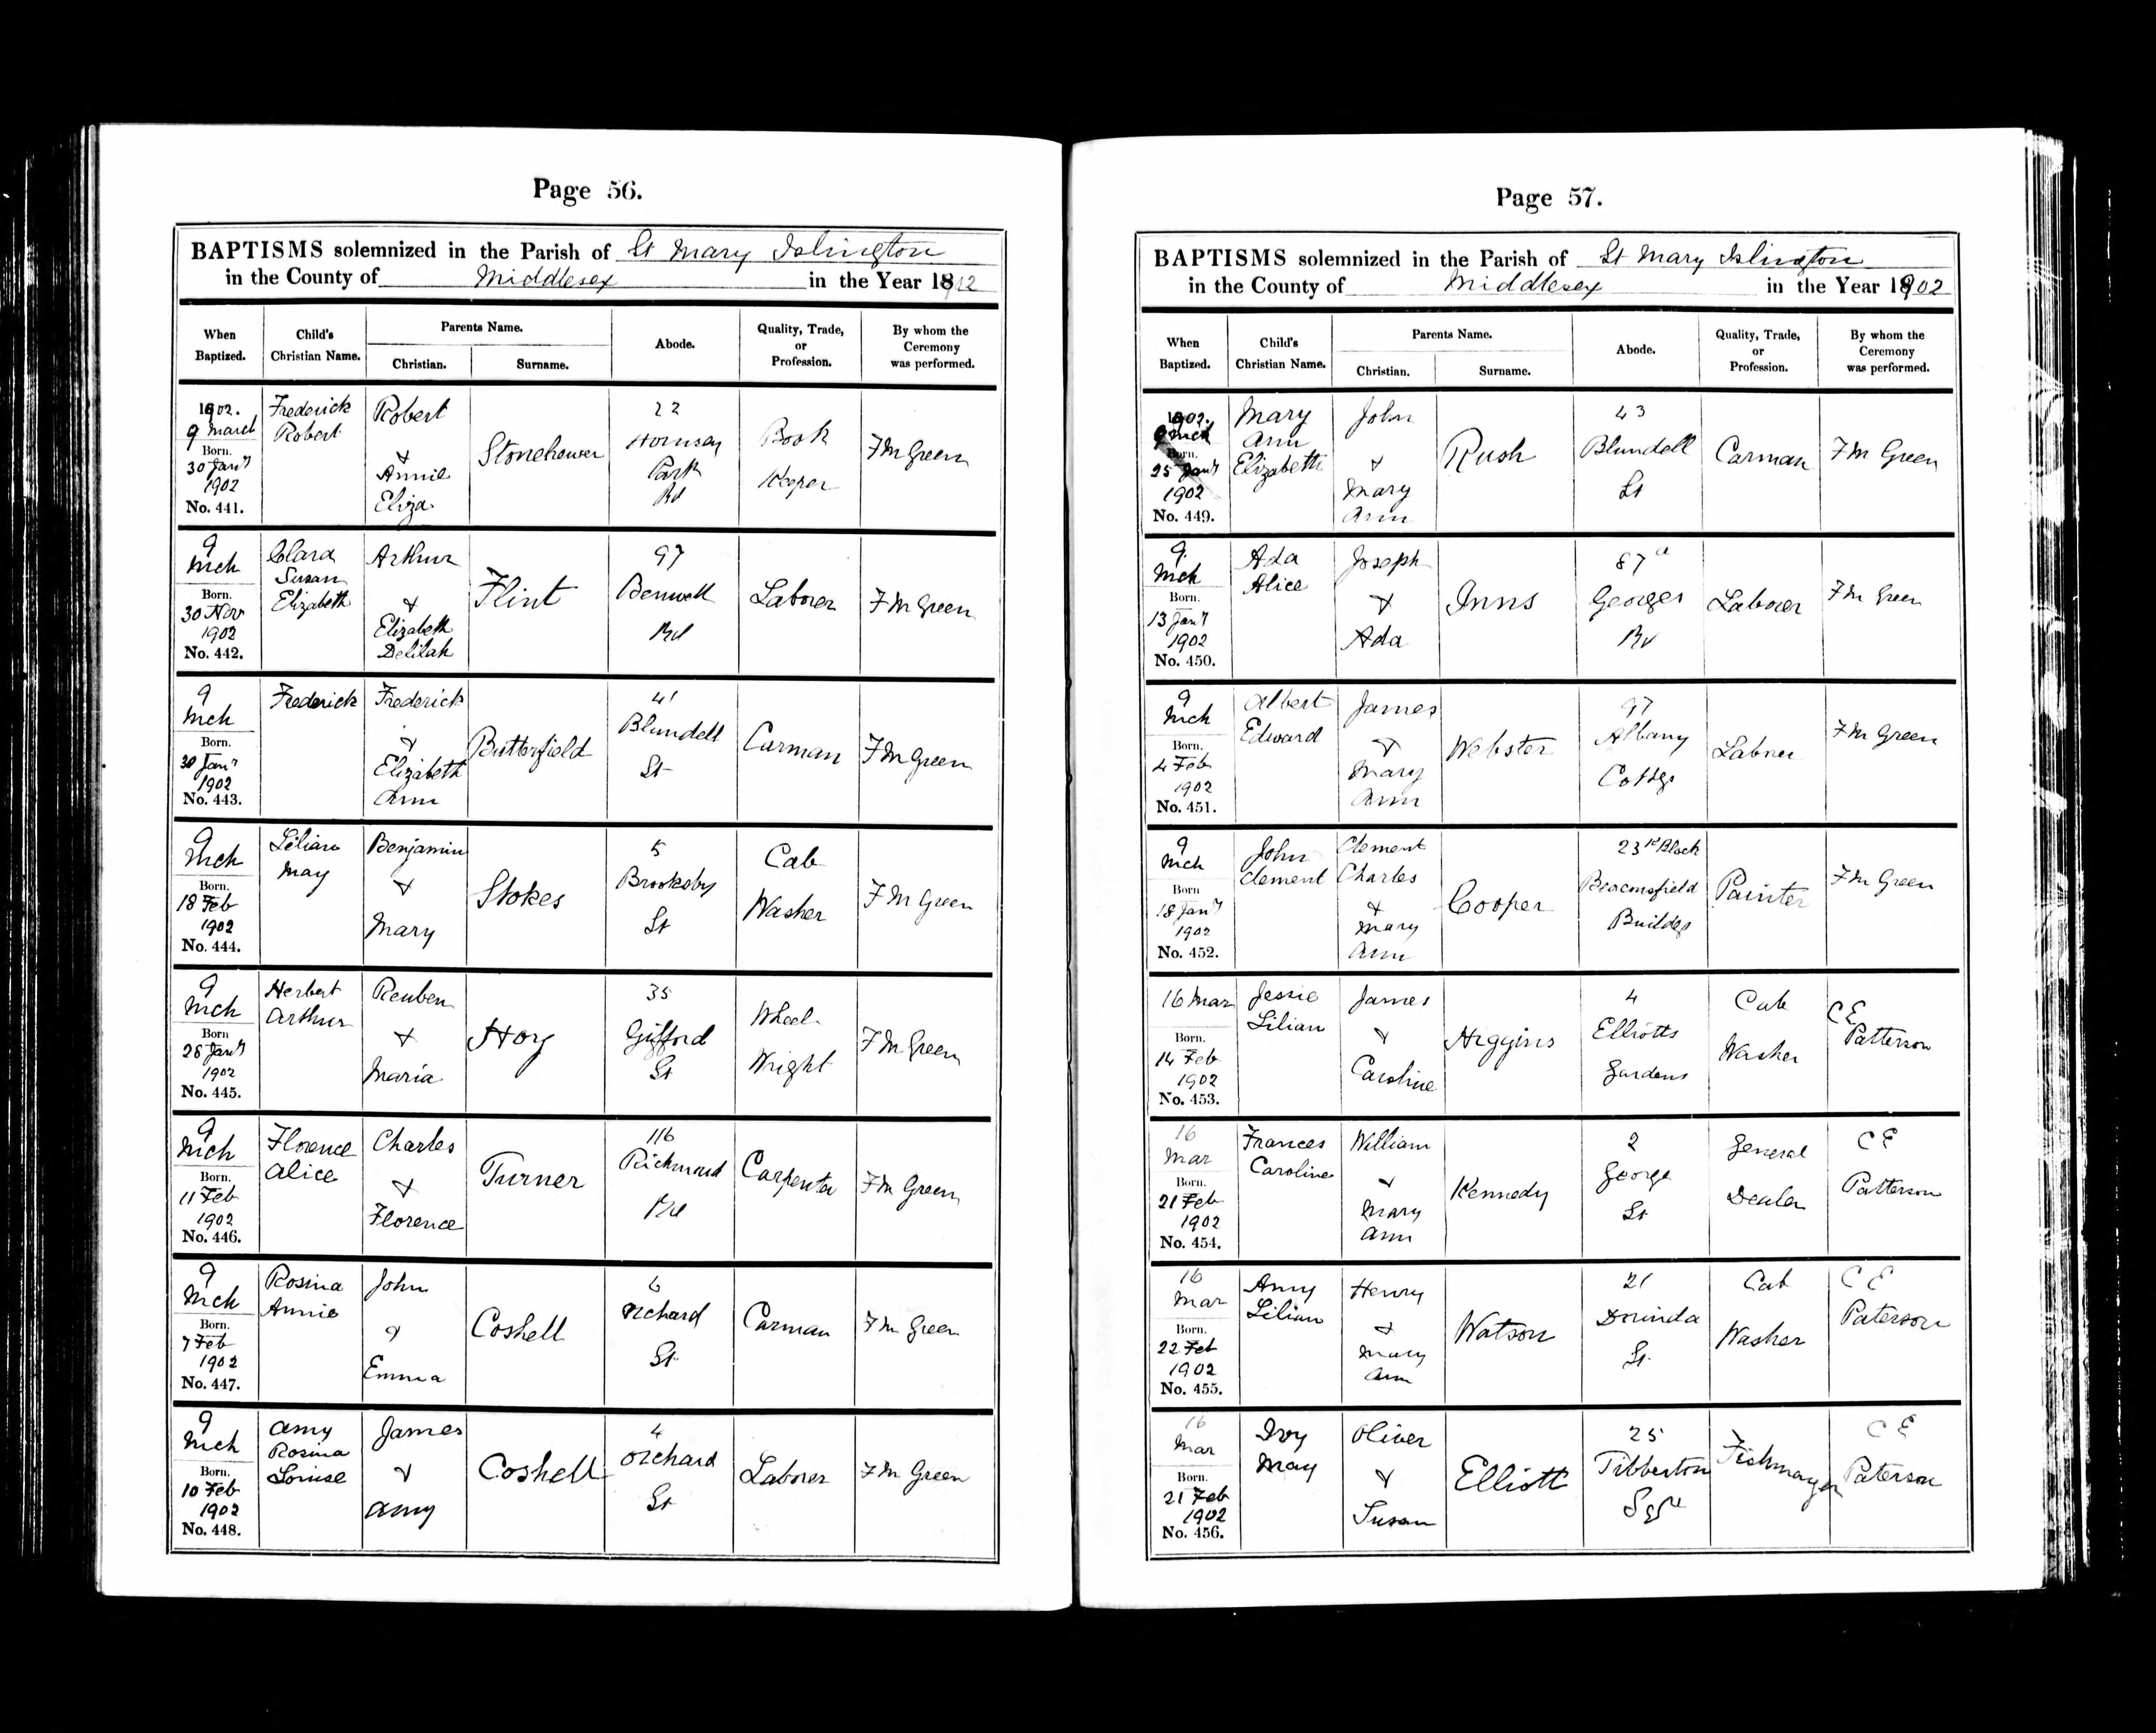 Page 56.
BAPTISMS solemnized in the Parish of St Mary Islington
in the County of Middlesex in the Year 1902
When Baptized. Child's Christian Name. Parents Name. Christian. Surname. Abode. Quality, Trade, or Profession. By whom the Ceremony was performed.
1902. 9 March Born. 30 Jany 1902 No. 441. Frederick Robert Robert & Annie Eliza Stonehewer 22 Hornsey Park Rd Book Keeper F M Green
9 Mch Born. 30 Nov 1902 No. 442. Clara Susan Elizabeth Arthur & Elizabeth Delilah Flint 97 Benwell Rd Laborer F M Green
9 Mch Born. 30 Jany 1902 No. 443. Frederick Frederick & Elizabeth Ann Butterfield 41 Blundell St Carman F M Green
9 Mch Born. 18 Feb 1902 No. 444. Lilian May Benjamin & Mary Stokes 5 Brooksby St Cab Washer F M Green
9 Mch Born 28 Jany 1902 No. 445. Herbert Arthur Reuben & Maria Hoy 35 Gifford St Wheel Wright F M Green
9 Mch Born. 11 Feb 1902 No. 446. Florence Alice Charles & Florence Turner 116 Richmond Rd Carpenter F M Green
9 Mch Born. 7 Feb 1902 No. 447. Rosina Annie John & Emma Coshell 6 Orchard St Carman F M Green
9 Mch Born. 10 Feb 1902 No. 448. Amy Rosina Louise James & Amy Coshell 4 Orchard St Laborer F M Green
Page 57.
BAPTISMS solemnized in the Parish of St Mary Islington
in the County of Middlesex in the Year 1902
When Baptized. Child's Christian Name. Parents Name. Christian. Surname. Abode. Quality, Trade, or Profession. By whom the Ceremony was performed.
1902. 9 Mch Born. 25 Jany 1902 No. 449. Mary Ann Elizabeth John & Mary Ann Rush 43 Blundell St Carman F M Green
9 Mch Born. 13 Jany 1902 No. 450. Ada Alice Joseph & Ada Inns 87a Georges Rd Laborer F M Green
9 Mch Born. 4 Feb 1902 No. 451. Albert Edward James & Mary Ann Webster 97 Albany Cottgs Laborer F M Green
9 Mch Born 18 Jany 1902 No. 452. John Clement Clement Charles & Mary Ann Cooper 23 Block Beaconsfield Buildgs Painter F M Green
16 Mar Born. 14 Feb 1902 No. 453. Jessie Lilian James & Caroline Higgins 4 Elliotts Gardens Cab Washer C E Patterson
16 Mar Born. 21 Feb 1902 No. 454. Frances Caroline William & Mary Ann Kennedy 2 George St General Dealer C E Patterson
16 Mar Born. 22 Feb 1902 No. 455. Amy Lilian Henry & Mary Ann Watson 21 Dorinda St Cab Washer C E Paterson
16 Mar Born. 21 Feb 1902 No. 456. Ivy May Oliver & Susan Elliott 25 Tibberton Sqre Fishmonger C E Paterson